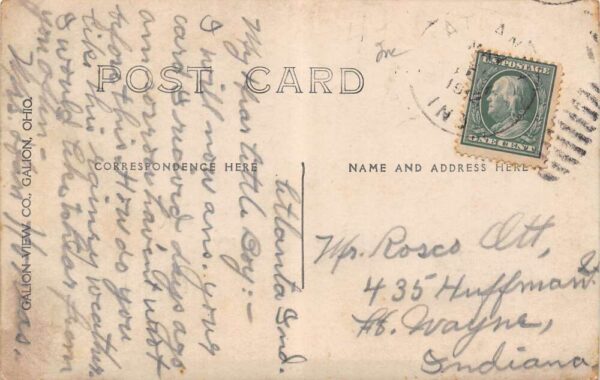 POST CARD
CORRESPONDENCE HERE
NAME AND ADDRESS HERE
GALION VIEW CO., GALION, OHIO.
U.S. POSTAGE
ONE CENT
Atlanta Ind.
My Dear little Boy:-
I will now ans. your
card I received days ago
am sorry haven't wrote
before this. How do you
like this rainey weather.
I would like to hear from
you
Mr. Rosco Ott,
435 Huffman St.
Ft. Wayne,
Indiana.